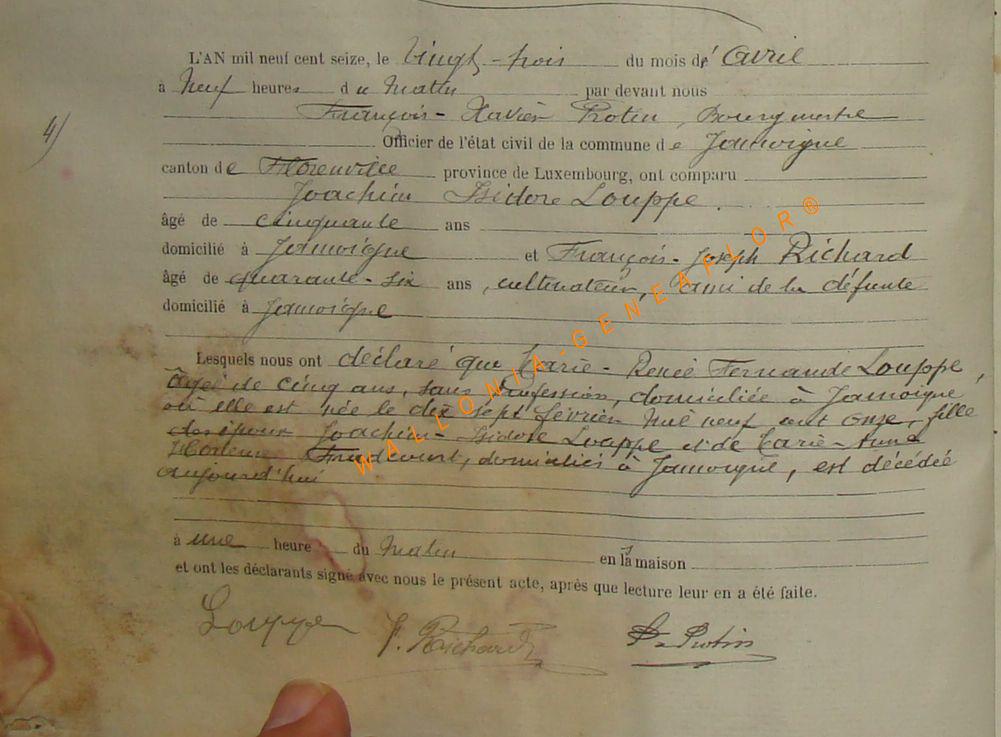 L'AN mil neuf cent seize, le vingt-trois du mois d' avril
à Neuf heures du Matin par devant nous
François-Xavier Protin, Bourgmestre
4)
Officier de l'état civil de la commune de Jamoigne
canton de Florenville province de Luxembourg, ont comparu
Joachim Isidore Louppe.
âgé de cinquante ans
domicilié à Jamoigne et François-Joseph Richard
âgé de quarante-six ans, cultivateur, ami de la défunte
domicilié à Jamoigne
Lesquels nous ont déclaré que Marie-Renée Fernande Louppe,
âgée de cinq ans, sans profession, domiciliée à Jamoigne
où elle est née le dix sept février mil neuf cent onze, fille
des époux Joachim-Isidore Louppe et de Marie-Anne
Hortense domiciliés à Jamoigne, est décédée
aujourd'hui
à une heure du Matin en sa maison
et ont les déclarants signé avec nous le présent acte, après que lecture leur en a été faite.
Louppe F. Richard Protin
WALLONIA-GENEAFLOR®